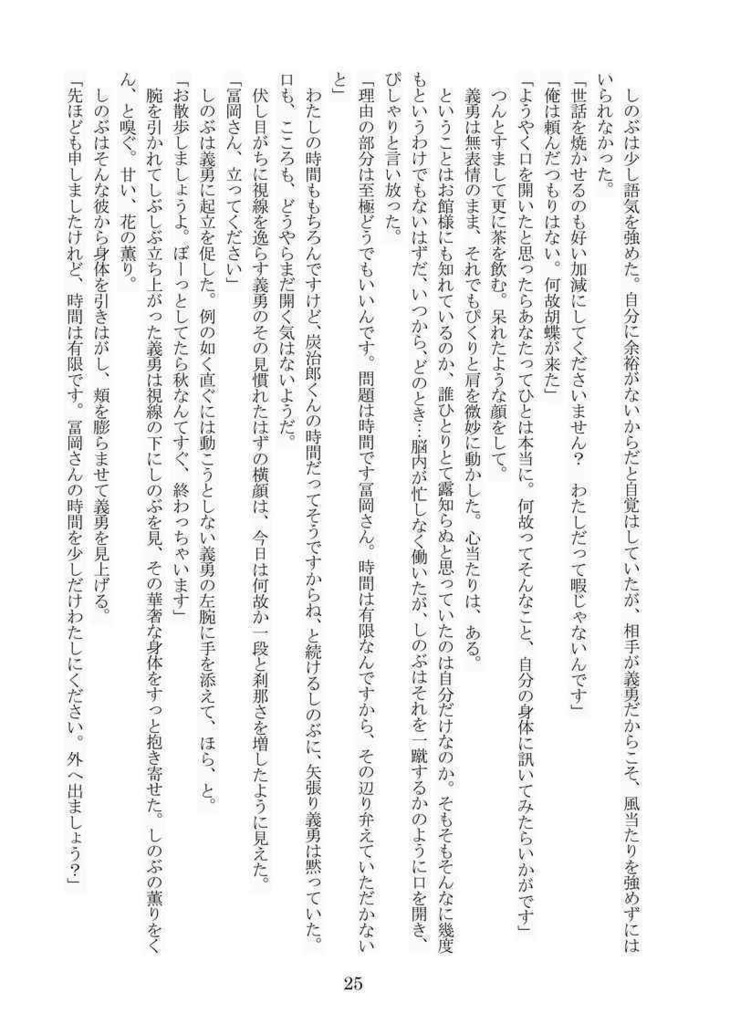 しのぶは少し語気を強めた。自分に余裕がないからだと自覚はしていたが、相手が義勇だからこそ、風当たりを強めずには
いられなかった。
「世話を焼かせるのも好い加減にしてくださいません？　わたしだって暇じゃないんです」
「俺は頼んだつもりはない。何故胡蝶が来た」
「ようやく口を開いたと思ったらあなたってひとは本当に。何故ってそんなこと、自分の身体に訊いてみたらいかがです」
つんとすまして更に茶を飲む。呆れたような顔をして。
義勇は無表情のまま、それでもぴくりと肩を微妙に動かした。心当たりは、ある。
ということはお館様にも知れているのか、誰ひとりとて露知らぬと思っていたのは自分だけなのか。そもそもそんなに幾度
もというわけでもないはずだ、いつから、どのとき…脳内が忙しなく働いたが、しのぶはそれを一蹴するかのように口を開き、
ぴしゃりと言い放った。
「理由の部分は至極どうでもいいんです。問題は時間です冨岡さん。時間は有限なんですから、その辺り弁えていただかない
と」
わたしの時間ももちろんですけど、炭治郎くんの時間だってそうですからね、と続けるしのぶに、矢張り義勇は黙っていた。
口も、こころも、どうやらまだ開く気はないようだ。
伏し目がちに視線を逸らす義勇のその見慣れたはずの横顔は、今日は何故か一段と刹那さを増したように見えた。
「冨岡さん、立ってください」
しのぶは義勇に起立を促した。例の如く直ぐには動こうとしない義勇の左腕に手を添えて、ほら、と。
「お散歩しましょうよ。ぼーっとしてたら秋なんてすぐ、終わっちゃいます」
腕を引かれてしぶしぶ立ち上がった義勇は視線の下にしのぶを見、その華奢な身体をすっと抱き寄せた。しのぶの薫りをく
ん、と嗅ぐ。甘い、花の薫り。
しのぶはそんな彼から身体を引きはがし、頬を膨らませて義勇を見上げる。
「先ほども申しましたけれど、時間は有限です。冨岡さんの時間を少しだけわたしにください。外へ出ましょう？」
25